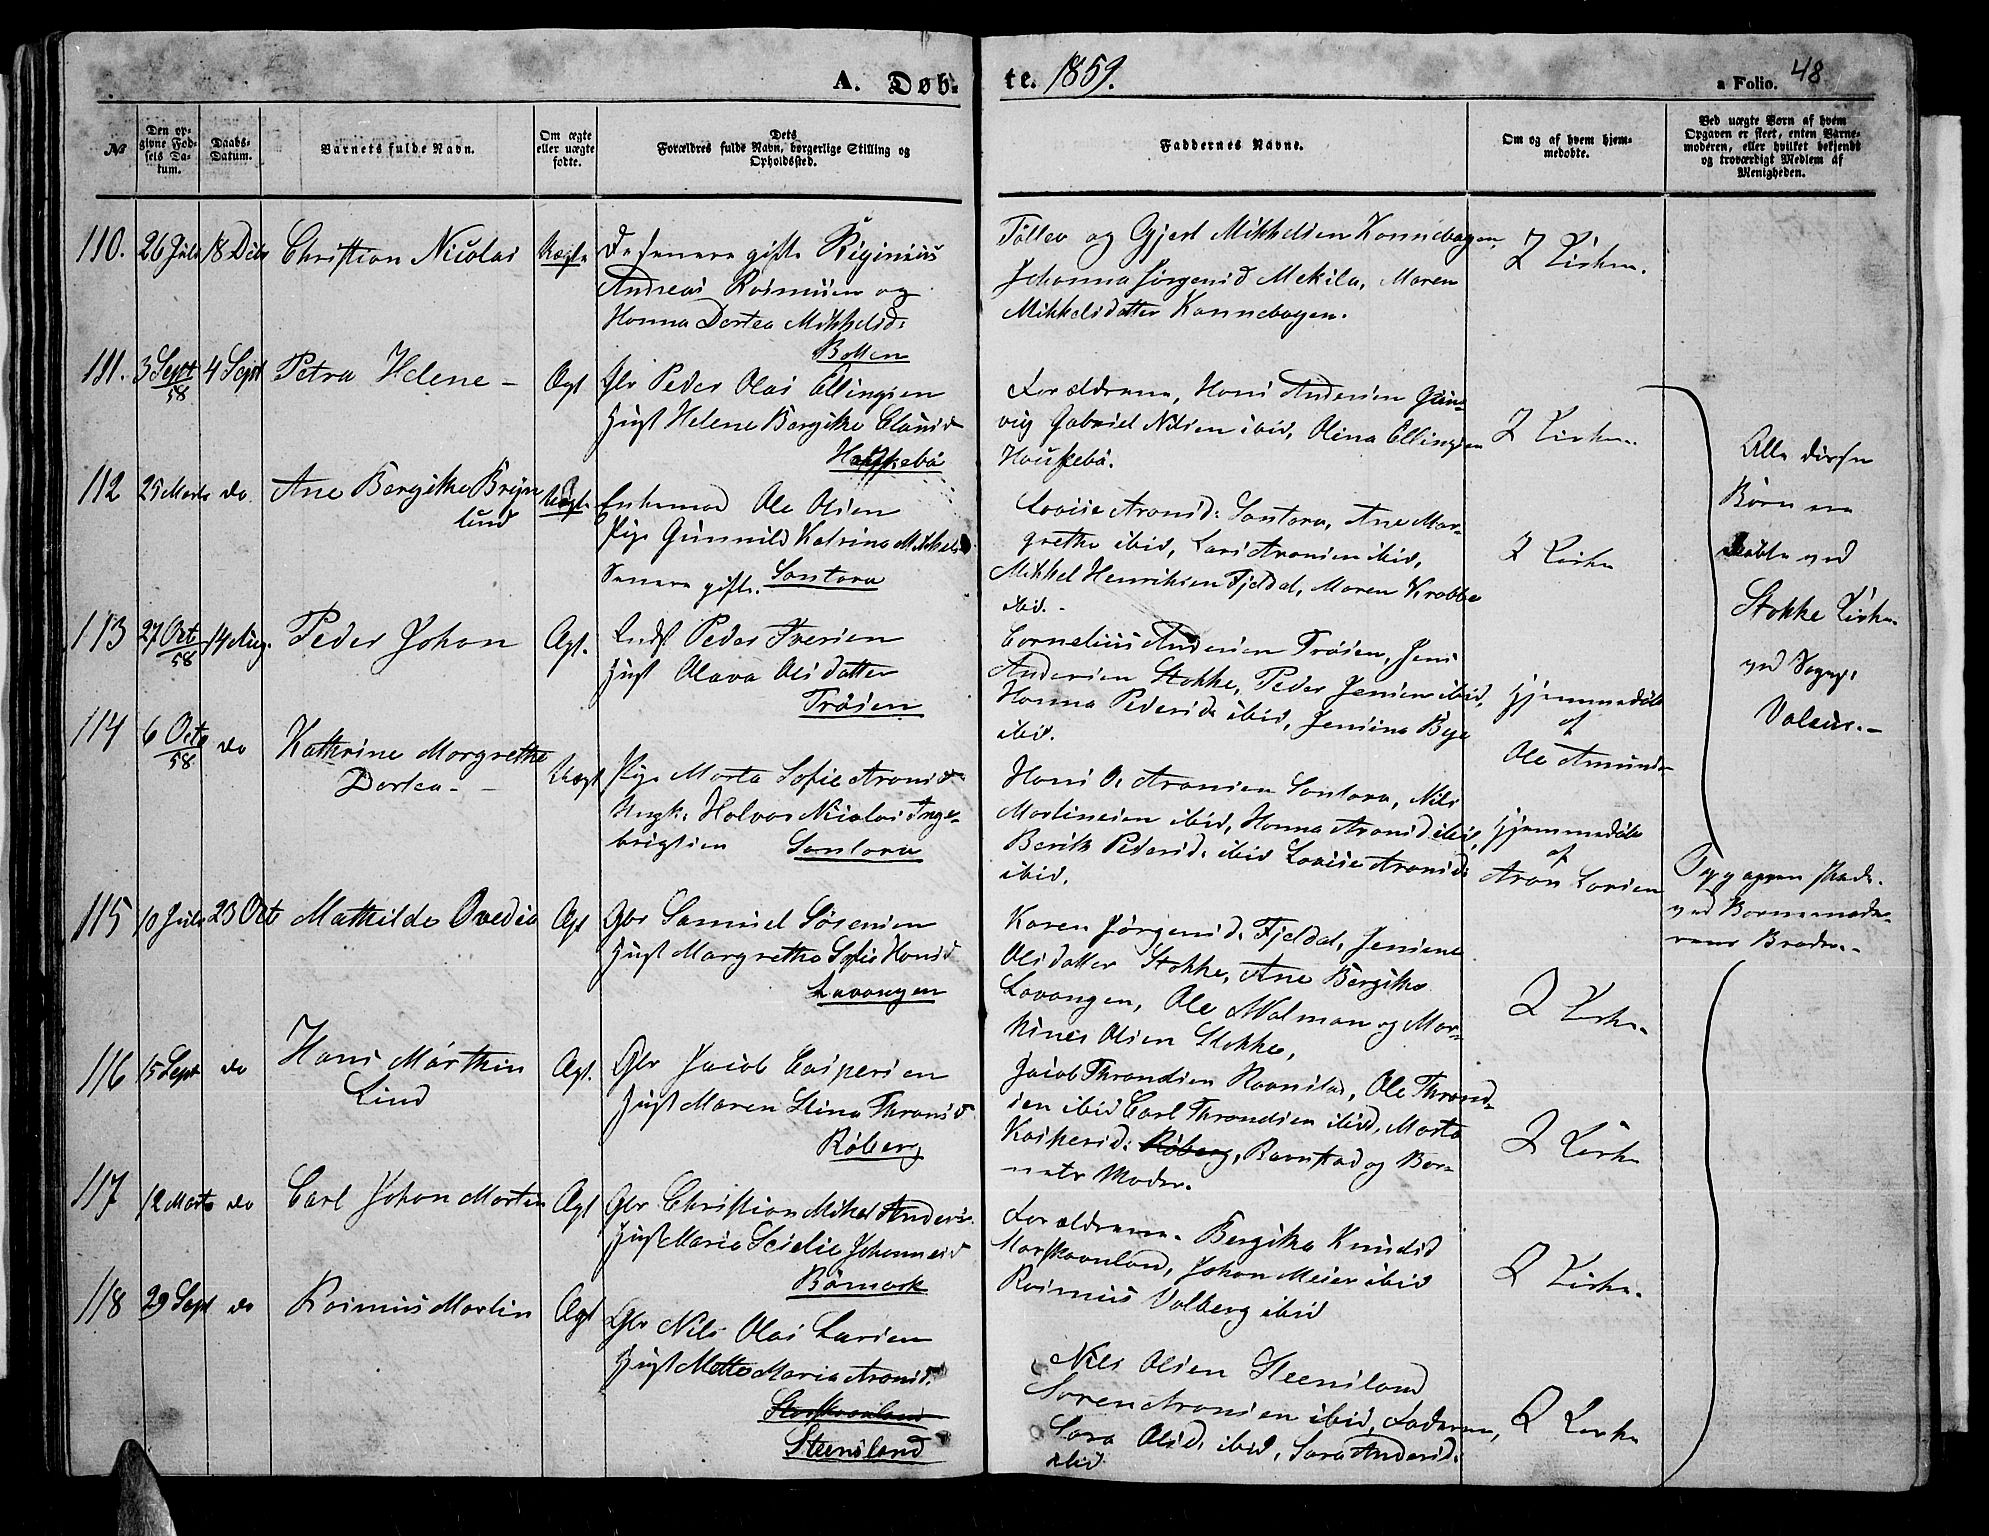 A. Døb-
te. 1859.
a Folio. 48
№
Den op-
givne Fød-
sels Da-
tum.
Daabs-
Datum.
Barnets fulde Navn.
Om ægte
eller uægte
fødte.
Dets
Forældres fulde Navn, borgerlige Stilling og
Opholdssted.
Faddernes Navne.
Om og af hvem hjem-
medøbte.
Ved uægte Børn af hvem
Opgaven er skeet, enten Barne-
moderen, eller hvilket bekjendt
og troværdigt Medlem af
Menigheden.
110. 26 Juli 18 Dcbr Christian Nicolai Uægte
De senere gifte
Andreas Rasmusen og
Hanna Dortea Mikkelsd:
Botten
Tollev og Gjert Mikkelsen Kannebogen,
Johanna Jørgensd Mekila, Maren
Mikkelsdatter Kannebogen.
I Kirken.
111. 3 Sept 58 4 Sept Petra Helene - Ægt
Gbr Peder Olai Ellingsen
Hust Helene Bergithe Clausd
Houkebö
Forældrene, Hans Andersen
Gabriel Nilsen ibid, Olina Ellingsen
Houkebö.
I Kirken.
112 25 Marts do. Ane Bergithe Bryn
lund Uægt.
Enkemand Ole Olsen
Pige Gunnild Katrina Mikkelsd.
Senere gifte. Santora
Lovise Aronsd: Santora, Ane Mar-
grethe ibid, Lars Aronsen ibid,
Mikkel Henriksen Fjeldal, Maren Krabbe
ibid.
I Kirken
113 27 Oct 58 14 Aug. Peder Johan Ægt.
Inds Peder Iversen
Hust Olava Olsdatter
Trösen
Cornelius Andersen Trösen, Jens
Andersen Stokke, Peder Jensen ibid,
Hanna Pedersd. ibid, Jensina Bye
ibid.
Hjemmedøbt
af
Ole Amunds
114 6 Octo 58 do Kathrine Margrethe
Dortea - Uægt
Pige Marta Sofie Aronsd.
Ungk: Halvor Nicolai Inge-
brigtsen Santora
Hans O. Aronsen Santora, Nils
Martinesen ibid, Hanna Aronsd ibid,
Berith Pedersd. ibid Lovise Aronsd:
ibid.
Hjemmedøbt
af
Aron Larsen
Alle disse
Børn ere
døbte ved
Stokke Kirke
ved Sognep:
Volqus.-
Opgaven skede
ved Barnemode-
rens Broder.-
115 10 Juli 23 Oct Mathilde Ovedia Ægt
Gbr Samuel Sörensen
Hust Margrethe Sofie Hansd
Lavangen
Karen Jörgensd. Fjeldal, Jensine
Olsdatter Stokke, Ane Bergithe
Lavangen, Ole Malman og Mar-
tines Olsen Stokke,
I Kirke.
116 15 Sept do Hans Marthin
Lind Ægt.
Gbr Jacob Caspersen
Hust Maren Stina Thronsd
Röberg
Jacob Throndsen Ravnstad, Ole Thrond-
sen ibid Carl Throndsen ibid, Marta
Kaspersd: Röberg, Ravnstad og Bar-
nets Moder.
I Kirke
117 12 Marts do Carl Johan Morten Ægt
Gbr Christian Mikal Anders.
Hust Maria Scielie Johannesd
Römark
Forældrene. Bergitha Knudsd
Johan Meier ibid
Rasmus Valberg ibid
I Kirke.
118 29 Sept do Rasmus Martin Ægt
Gbr Nils Olai Larsen
Hust Mette Maria Aronsd.
Steensland
Nils Olsen Steensland
Soren Aronsen ibid, Faderen,
Sara Olsd. ibid, Sara Andersd:
ibid
I Kirke